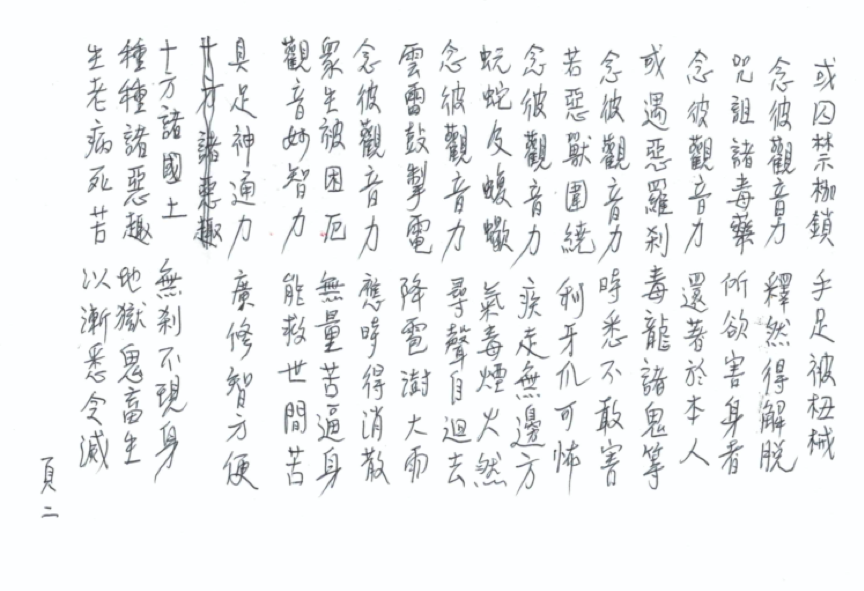 或囚禁枷鎖 手足被杻械
念彼觀音力 釋然得解脫
咒詛諸毒藥 所欲害身者
念彼觀音力 還著於本人
或遇惡羅剎 毒龍諸鬼等
念彼觀音力 時悉不敢害
若惡獸圍繞 利牙爪可怖
念彼觀音力 疾走無邊方
蚖蛇及蝮蠍 氣毒煙火然
念彼觀音力 尋聲自迴去
雲雷鼓掣電 降雹澍大雨
念彼觀音力 應時得消散
眾生被困厄 無量苦逼身
觀音妙智力 能救世間苦
具足神通力 廣修智方便
十方諸惡趣
十方諸國土 無剎不現身
種種諸惡趣 地獄鬼畜生
生老病死苦 以漸悉令滅
頁二